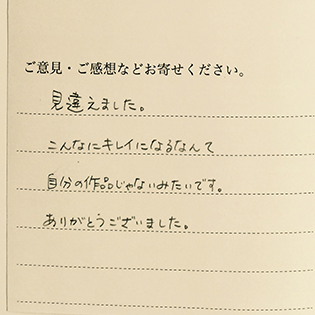 ご意見・ご感想などお寄せください。
見違えました。
こんなにキレイになるなんて
自分の作品じゃないみたいです。
ありがとうございました。